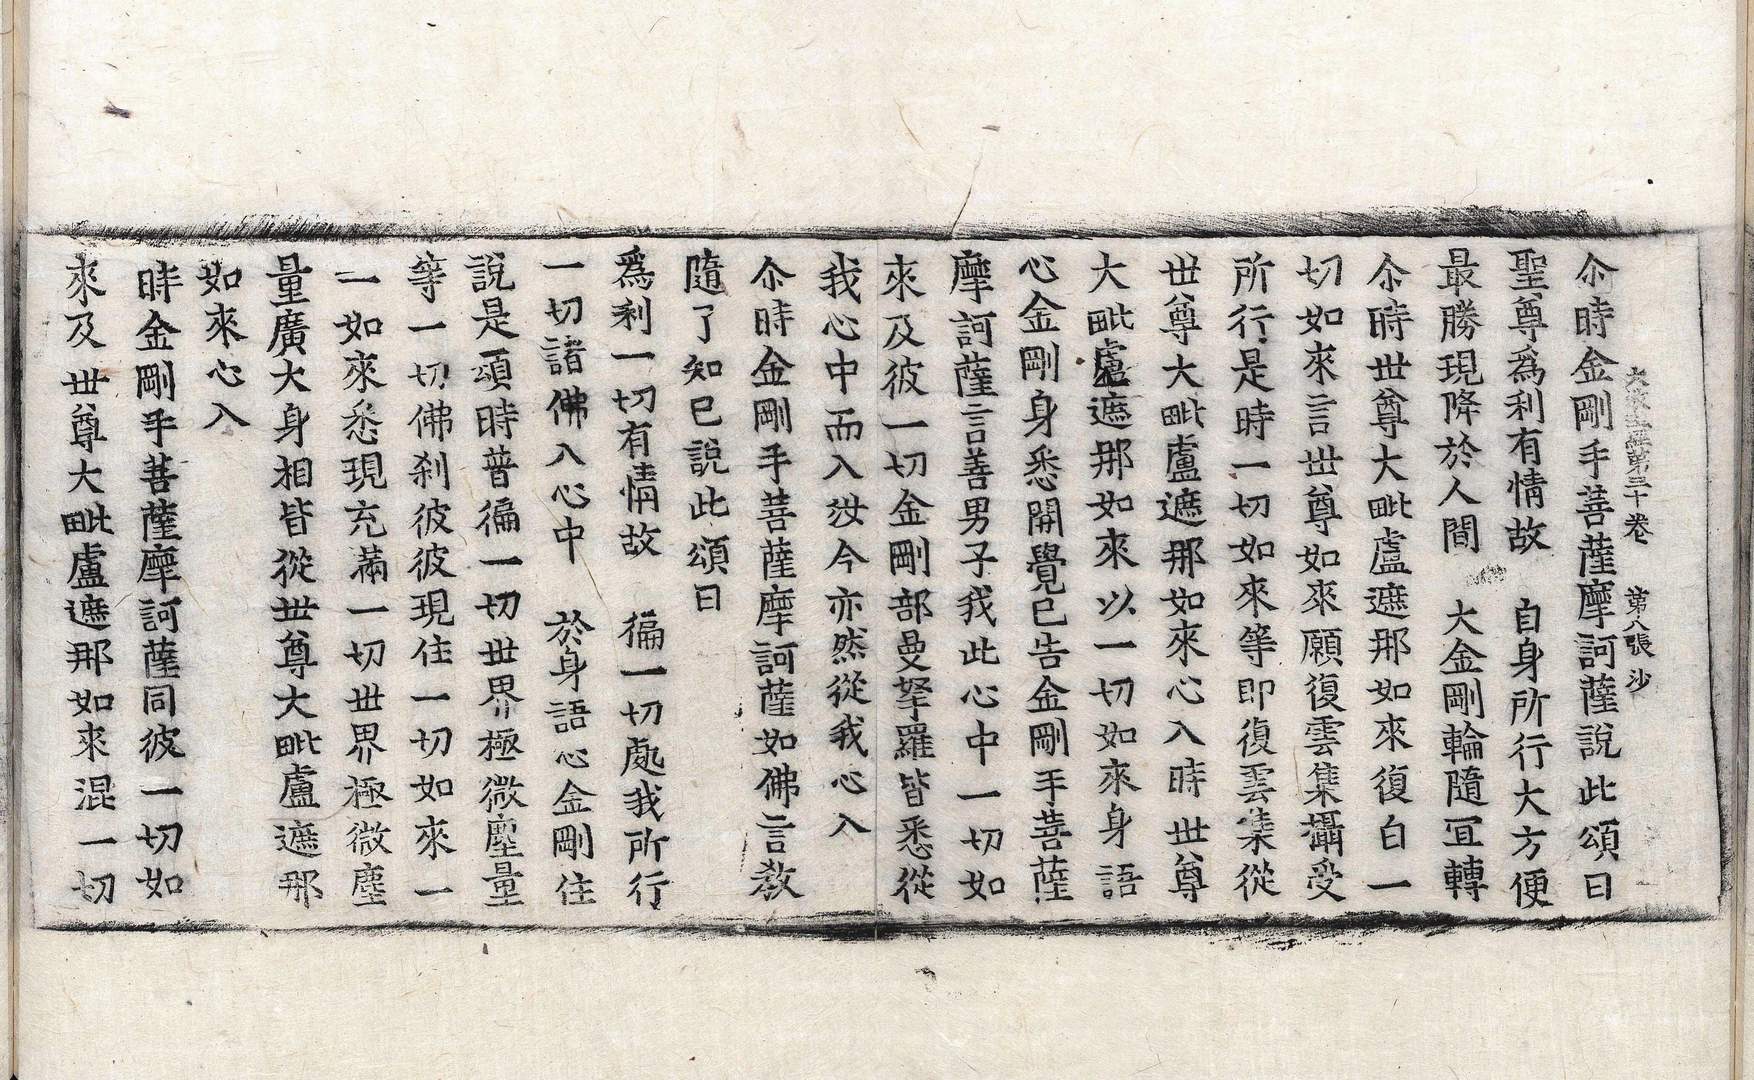 大教王經第三十卷　第八張　沙
尒時金剛手菩薩摩訶薩說此頌曰
聖尊為利有情故　自身所行大方便
最勝現降於人間　大金剛輪隨冝轉
尒時世尊大毗盧遮那如來復白一
切如來言世尊如來願復雲集攝受
所行是時一切如來等即復雲集從
世尊大毗盧遮那如來心入時世尊
大毗盧遮那如來以一切如來身語
心金剛身悉開覺已告金剛手菩薩
摩訶薩言善男子我此心中一切如
來及彼一切金剛部曼拏羅皆悉從
我心中而入汝今亦然從我心入
尒時金剛手菩薩摩訶薩如佛言教
隨了知已說此頌曰
為利一切有情故　徧一切處我所行
一切諸佛入心中　於身語心金剛住
說是頌時普徧一切世界極微塵量
等一切佛刹彼彼現住一切如來一
一如來悉現充滿一切世界極微塵
量廣大身相皆從世尊大毗盧遮那
如來心入
時金剛手菩薩摩訶薩同彼一切如
來及世尊大毗盧遮那如來混一切